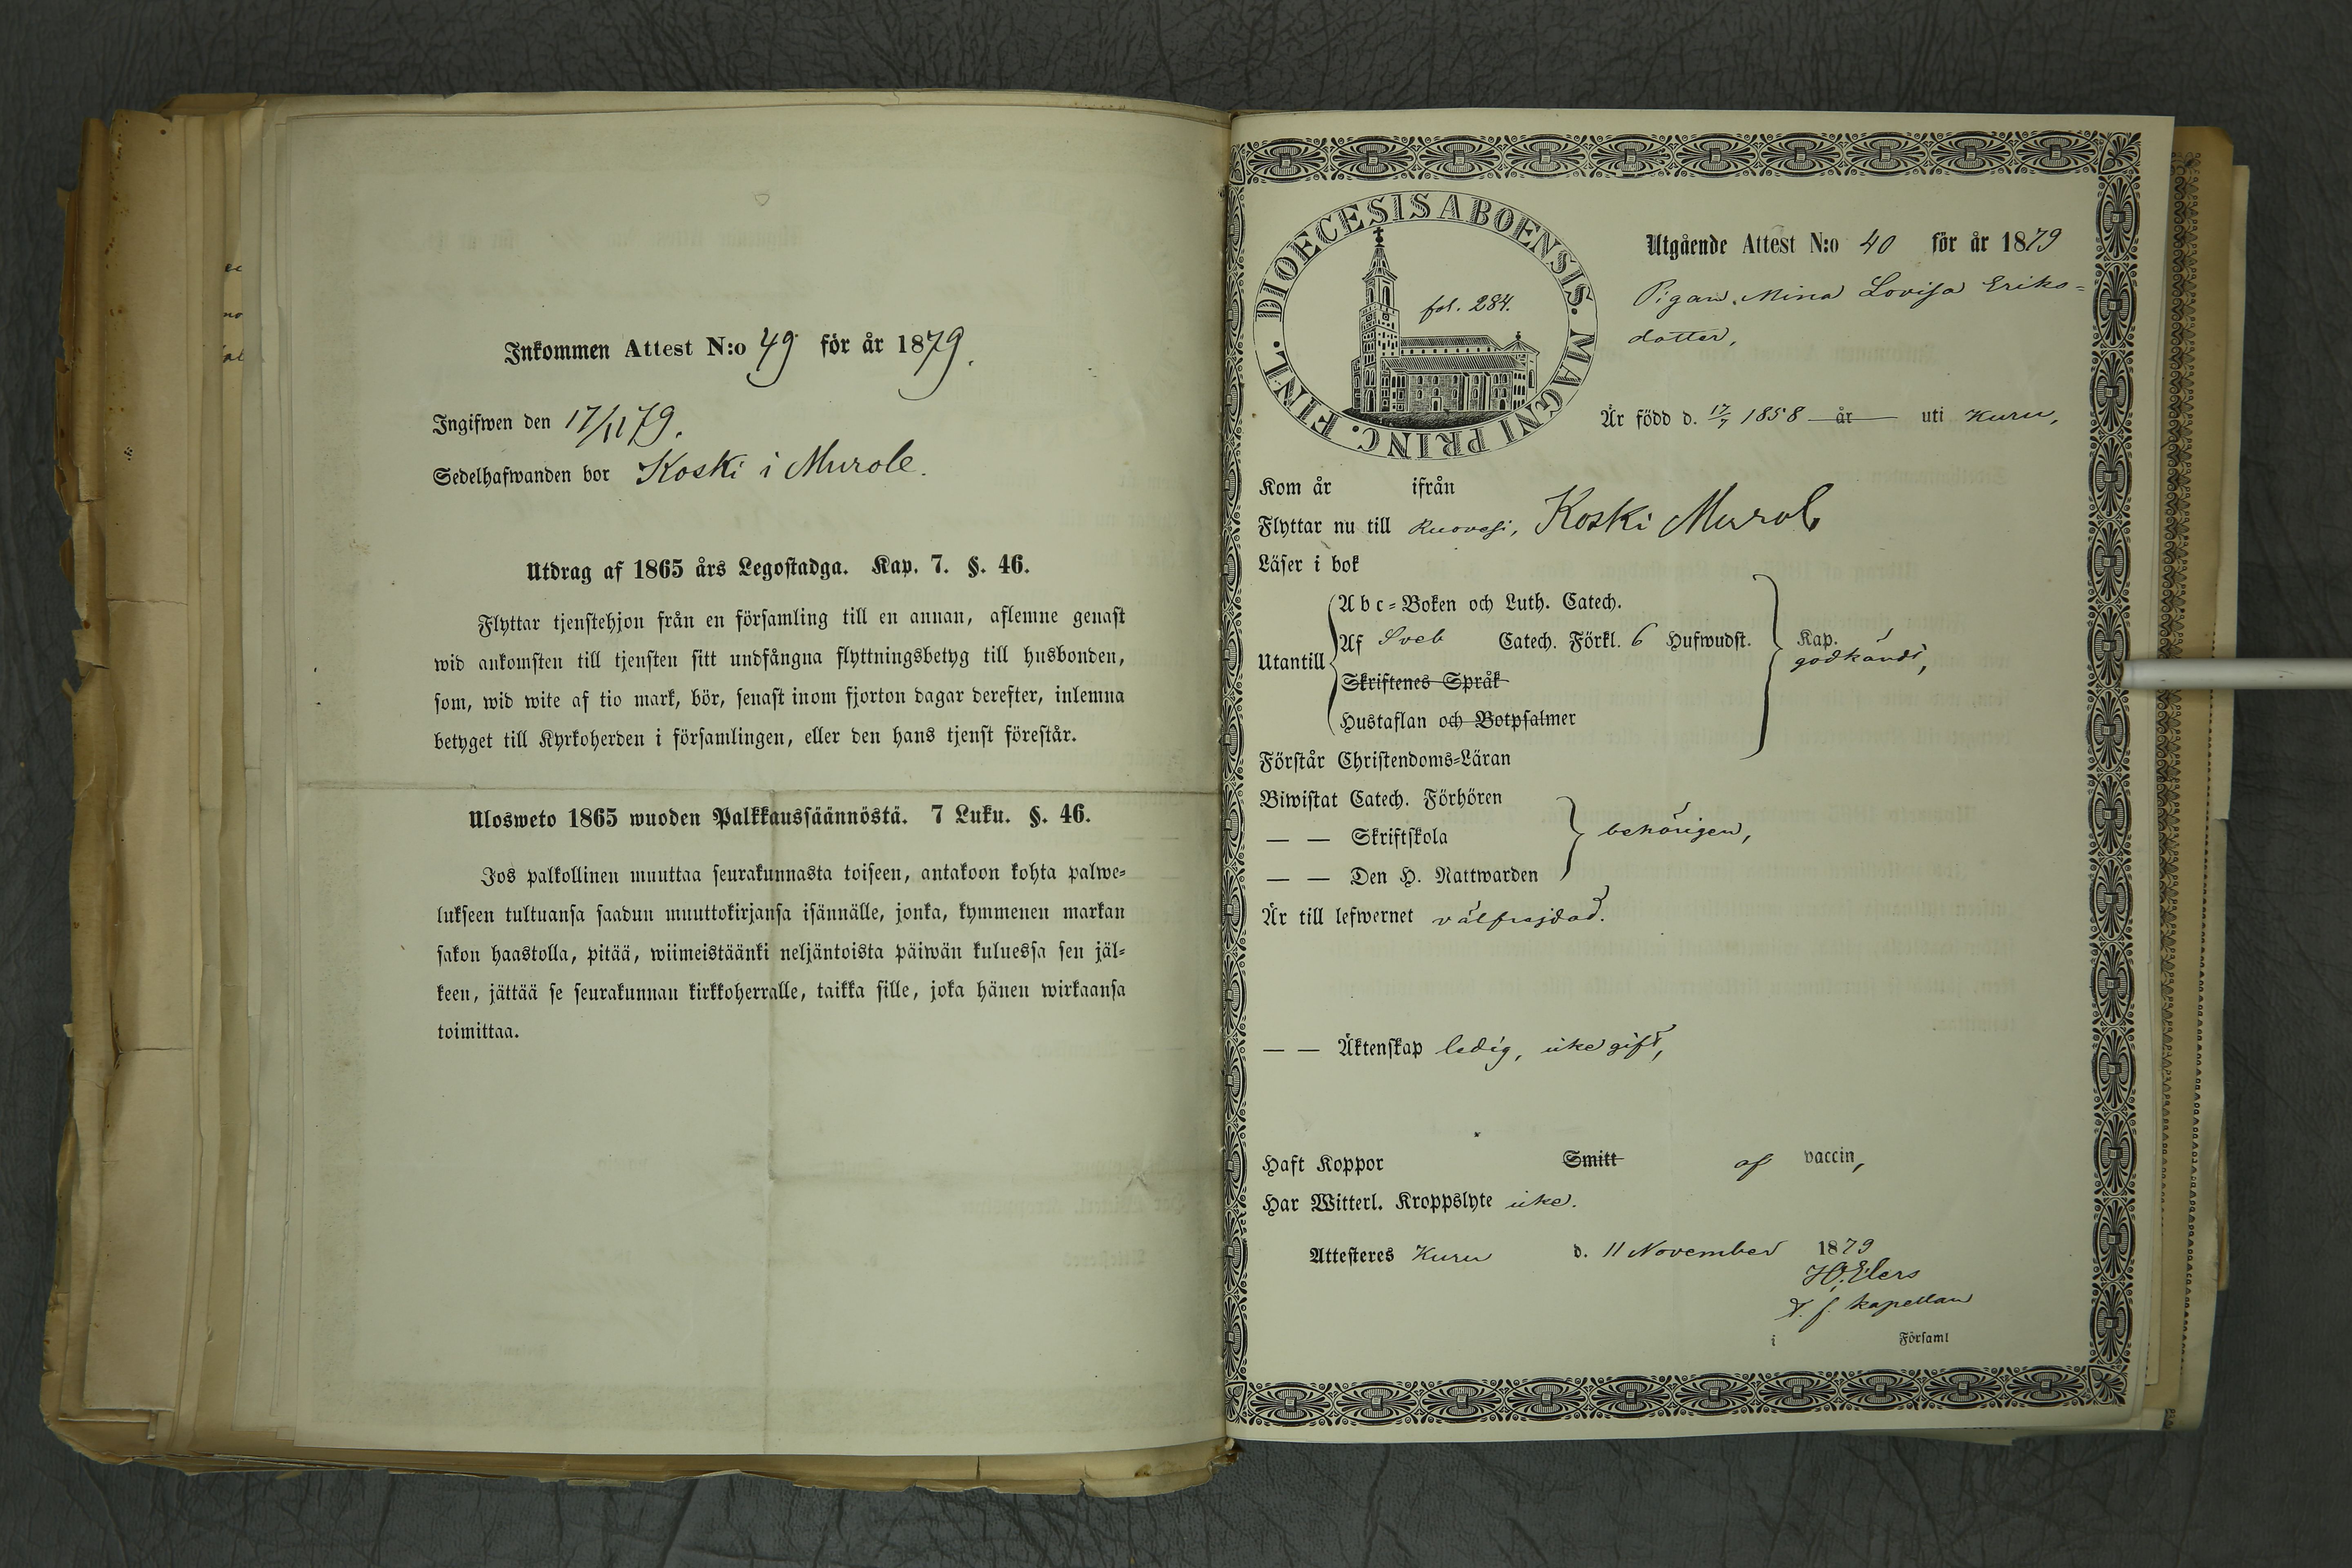 Inkommen Attest N:o 49 för år 1879.
Ingifwen den 17/11 79.
Sedelhafwanden bor Koski i Murole.
Utdrag af 1865 års Legostadga. Kap. 7. §. 46.
Flyttar tjenstehjon från en församling till en annan, aflemne genast
wid ankomsten till tjensten sitt undfångna flyttningsbetyg till husbonden,
som, wid wite af tio mark, bör, senast inom fjorton dagar derefter, inlemna
betyget till Kyrkoherden i församlingen, eller den hans tjenst förestår.
Ulosweto 1865 wuoden Palkkaussäännöstä. 7 Luku. §. 46.
Jos palkollinen muuttaa seurakunnasta toiseen, antakoon kohta palwe-
lukseen tultuansa saadun muuttokirjansa isännälle, jonka, kymmenen markan
sakon haastolla, pitää, wiimeistäänki neljäntoista päiwän kuluessa sen jäl-
keen, jättää se seurakunnan kirkkoherralle, taikka sille, joka hänen wirkaansa
toimittaa.
DIOECESIS ABOENSIS. MAGNI PRINC. FINL.
fol. 284.
Utgående Attest N:o 40 för år 1879
Pigan Mina Lovisa Eriks=
dotter,
Är född d. 17/7 1858 år uti Kuru,
Kom år ifrån
Flyttar nu till Ruovesi, Koski Murole
Läser i bok
Utantill
Abc-Boken och Luth. Catech.
Af Sveb Catech. Förkl. 6 Hufwudst.
Skriftenes Språk
Hustaflan och Botpsalmer
Kap.
godkändt,
Förstår Christendoms-Läran
Biwistat Catech. Förhören
— — Skriftskola
— — Den H. Nattwarden
behörigen,
Är till lefwernet välfrejdad.
— — Äktenskap ledig, icke gift,
Haft Koppor Smitt af vaccin,
Har Witterl. Kroppslyte icke.
Attesteres Kuru d. 11 November 1879
H. Elers
v. f. kapellan
i Församl